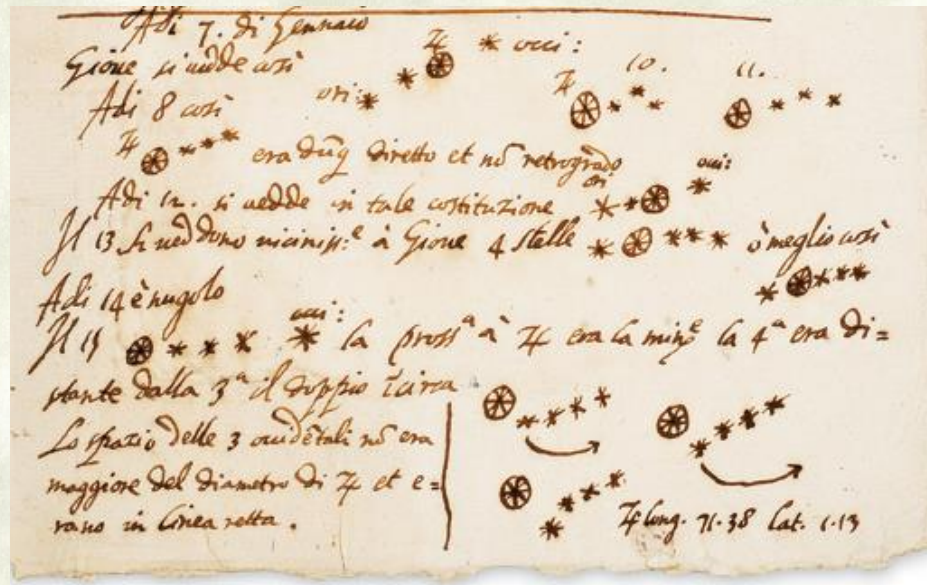 Adi 7. di Gennaio
Gioue si uedde così ♃ occi:
Adi 8 così ori: ♃ 10. 11.
♃ era dūq diretto et nō retrogrado
Adi 12. si uedde in tale costituzione ori occi:
Il 13 si ueddono uiciniss:e à Gioue 4 stelle ò meglio così
Adi 14 è nugolo
Il 15 occi: la prossa à ♃ era la mine la 4a era di=
stante dalla 3a il doppio īcirca
Lo spazio delle 3 occidētali nō era
maggiore del diametro di ♃ et e=
rano in linea retta.
♃ long. 71.38 lat. 1.13